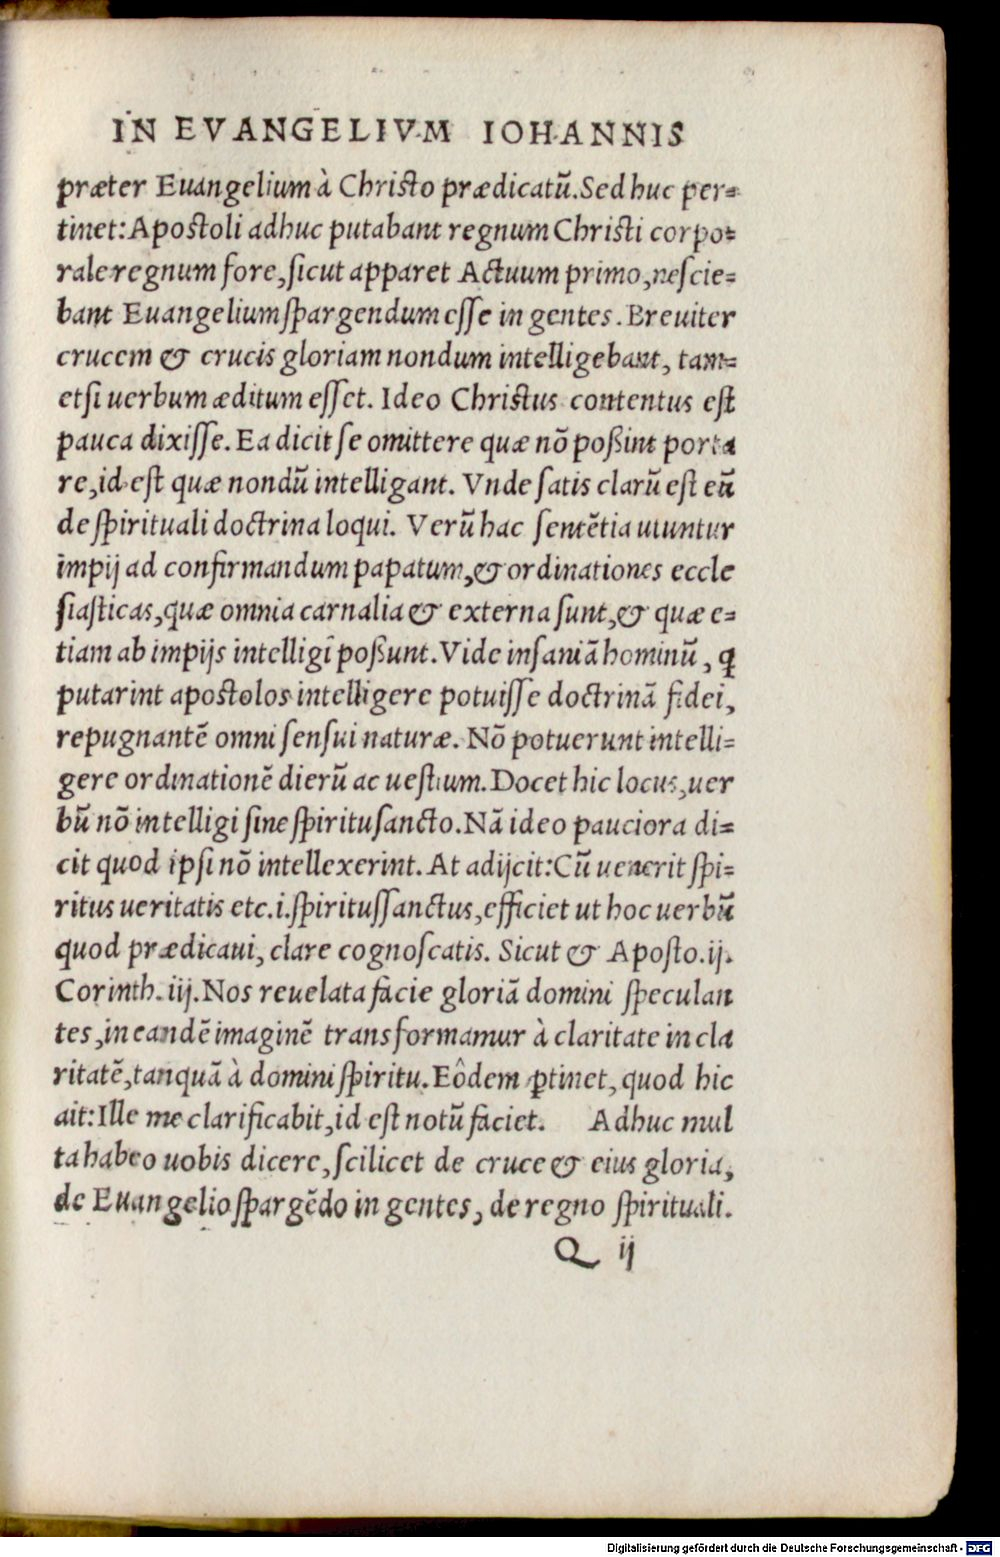 IN EVANGELIVM IOHANNIS
præter Euangelium à Christo prædicatũ. Sed huc per=
tinet: Apostoli adhuc putabant regnum Christi corpo=
rale regnum fore, sicut apparet Actuum primo, nescie=
bant Euangelium spargendum esse in gentes. Breuiter
crucem & crucis gloriam nondum intelligebant, tam=
etsi uerbum æditum esset. Ideo Christus contentus est
pauca dixisse. Ea dicit se omittere quæ nõ poßint porta
re, id est quæ nondũ intelligant. Vnde satis clarũ est eũ
de spirituali doctrina loqui. Verũ hac sentẽtia utuntur
impij ad confirmandum papatum, & ordinationes eccle
siasticas, quæ omnia carnalia & externa sunt, & quæ e=
tiam ab impijs intelligi poßunt. Vide insaniã hominũ, ꝗ
putarint apostolos intelligere potuisse doctrinã fidei,
repugnantẽ omni sensui naturæ. Nõ potuerunt intelli=
gere ordinationẽ dierũ ac uestium. Docet hic locus, uer
bũ nõ intelligi sine spiritusancto. Nã ideo pauciora di=
cit quod ipsi nõ intellexerint. At adijcit: Cũ uenerit spi=
ritus ueritatis etc. i. spiritussanctus, efficiet ut hoc uerbũ
quod prædicaui, clare cognoscatis. Sicut & Aposto. ij.
Corinth. iij. Nos reuelata facie gloriã domini speculan
tes, in eandẽ imaginẽ transformamur à claritate in cla
ritatẽ, tanquã à domini spiritu. Eôdem ꝑtinet, quod hic
ait: Ille me clarificabit, id est notũ faciet. Adhuc mul
ta habeo uobis dicere, scilicet de cruce & eius gloria,
de Euangelio spargẽdo in gentes, de regno spirituali.
Q ij
Digitalisierung gefördert durch die Deutsche Forschungsgemeinschaft - DFG